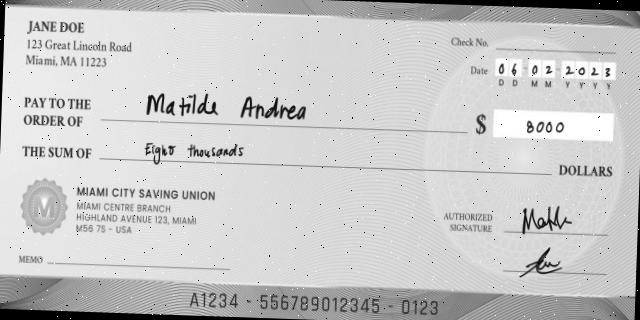 JANE DOE
123 Great Lincoln Road
Miami, MA 11223
Check No.
Date 06 02 2023
D D M M Y Y Y Y
PAY TO THE
ORDER OF Matilde Andrea
$ 8000
THE SUM OF Eight thousands DOLLARS
MIAMI CITY SAVING UNION
MIAMI CENTRE BRANCH
HIGHLAND AVENUE 123, MIAMI
M56 7S - USA
M
AUTHORIZED
SIGNATURE
MEMO
A1234 - 556789012345 - 0123